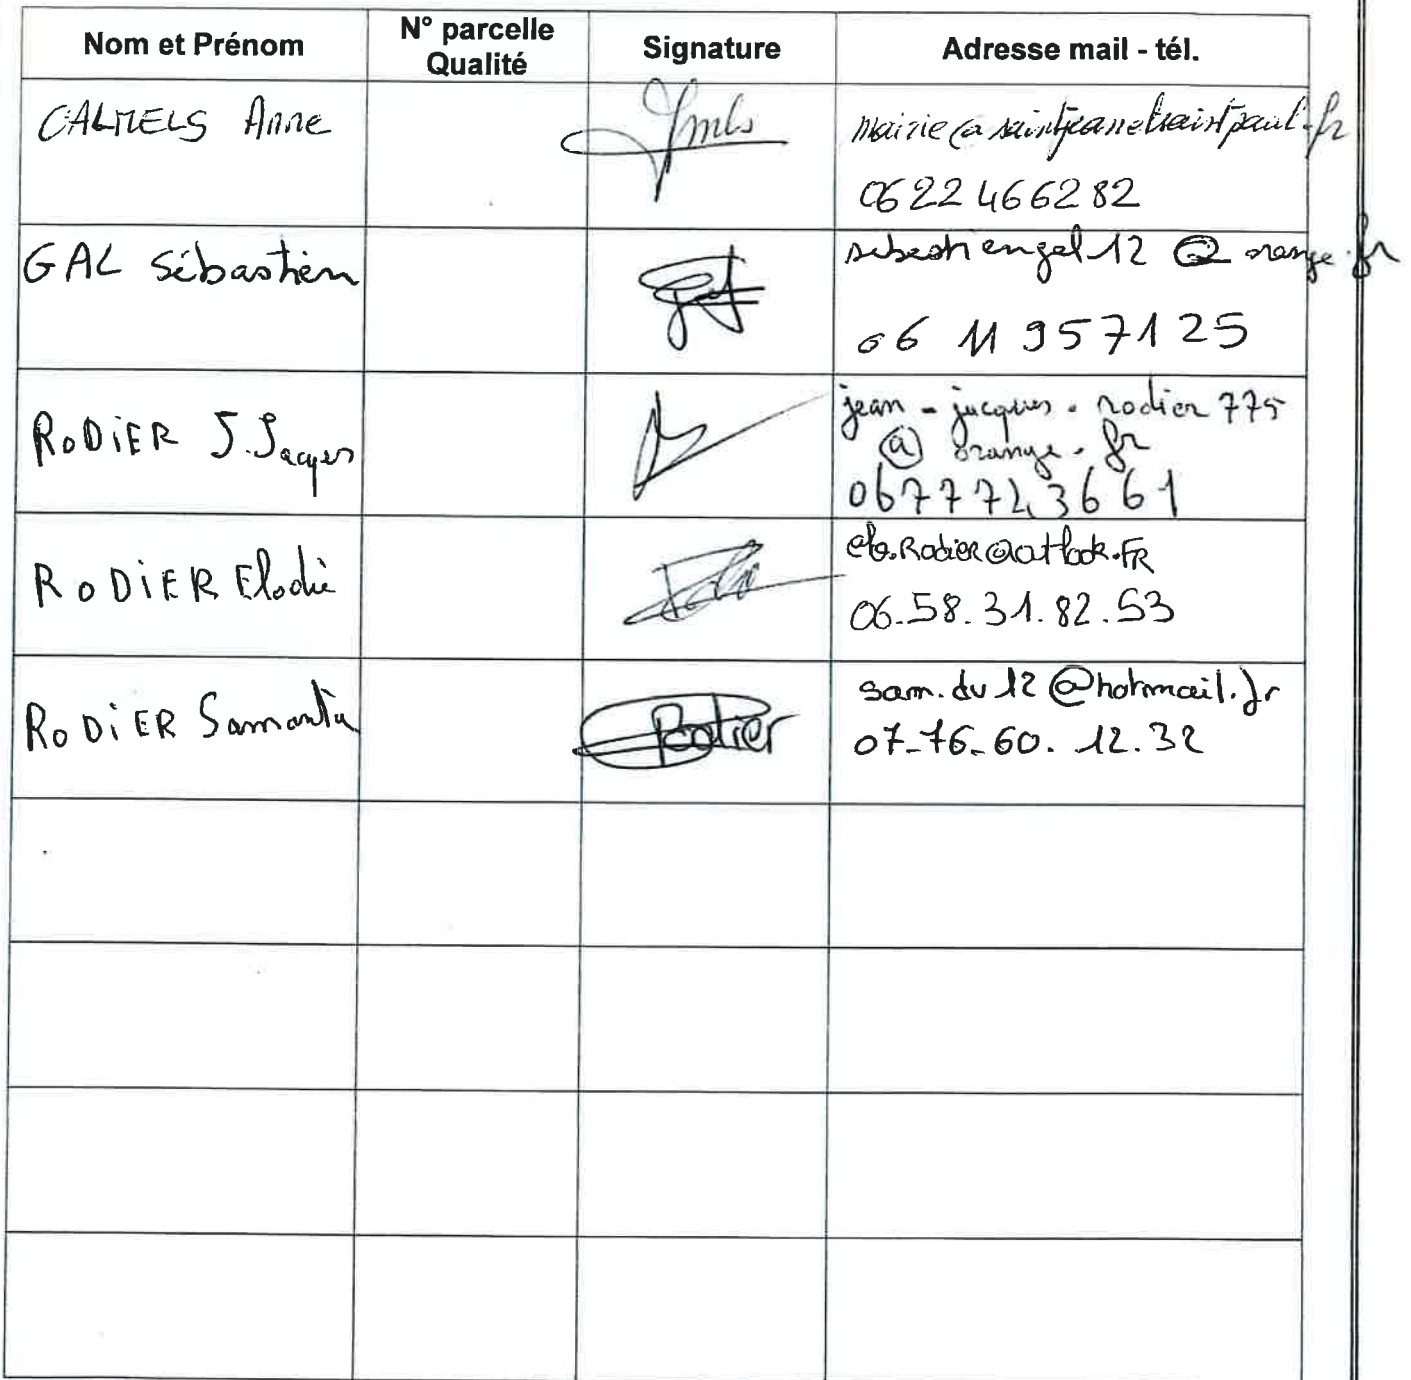 Nom et Prénom
N° parcelle
Qualité
Signature
Adresse mail - tél.
CALMELS Anne
mairie@saintjeanetsaintpaul.fr
0622466282
GAL Sébastien
sebastiengal12@orange.fr
06 11 957125
RODiER J. Jacques
jean-jacques.rodier775
@orange.fr
0677743661
RODiER Elodie
elo.Rodier@outlook.FR
06.58.31.82.53
RODiER Samanta
Rodier
sam.du12@hotmail.fr
07-76-60.12.32